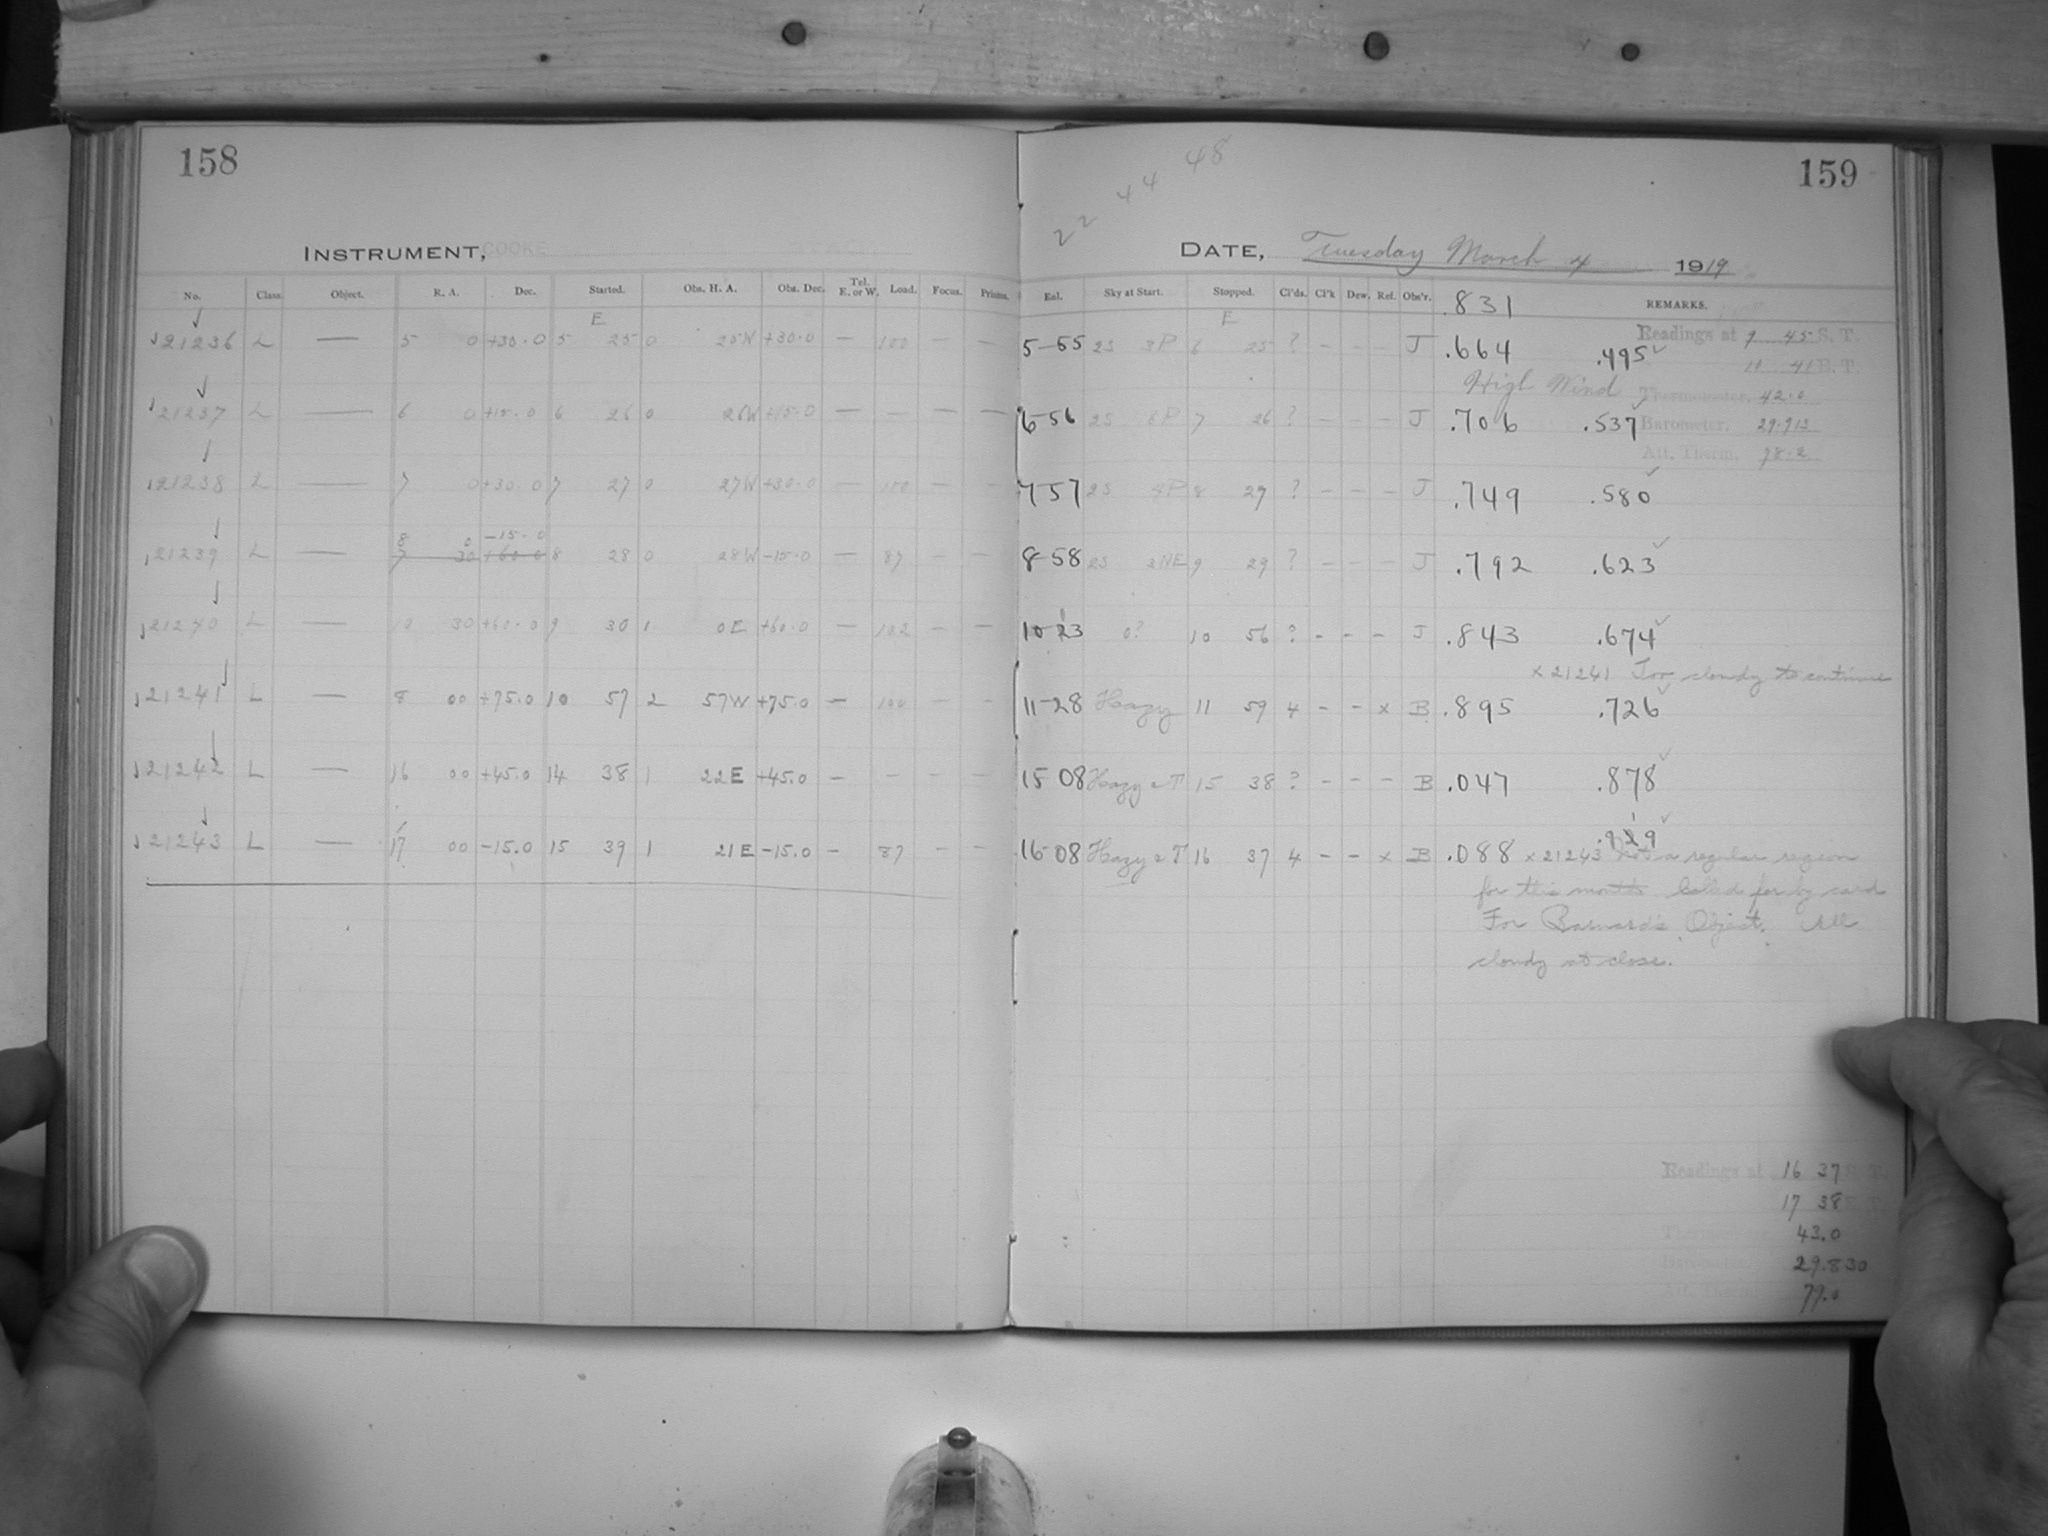 158
INSTRUMENT, COOKE
No. Class. Object. R. A. Dec. Started. Obs. H. A. Obs. Dec. Tel. E. or W. Load. Focus. Prisms.
E
21236 L — 5 0 +30.0 5 25 0 25W +30.0 — 100 — —
21237 L — 6 0 +15.0 6 26 0 26W +15.0 — — — —
21238 L — 7 0 +30.0 7 27 0 27W +30.0 — 100 — —
8 0 -15.0
21239 L — 7 30 +60.0 8 28 0 28W -15.0 — 87 — —
21240 L — 10 30 +60.0 9 30 1 0E +60.0 — 102 — —
21241 L — 8 00 +75.0 10 57 2 57W +75.0 — 100 — —
21242 L — 16 00 +45.0 14 38 1 22E +45.0 — — — —
21243 L — 17 00 -15.0 15 39 1 21E -15.0 — 87 — —
159
22 44 48
DATE, Tuesday March 4 1919
Exl. Sky at Start. Stopped. Cl'ds. Cl'k Dew. Ref. Obs'r. .831 REMARKS.
E
5-55 2S 3P 6 25 ? - - - J .664 .495
Readings at 9 45 S. T.
10 41 E. T.
High Wind
Thermometer. 42.0
6-56 2S 6P 7 26 ? - - - J .706 .537
Barometer. 29.912
Att. Therm. 78.2
7 57 2S 4P 8 27 ? - - - J .749 .580
8-58 2S 2NE 9 29 ? - - - J .792 .623
10-13 0? 10 56 ? - - - J .843 .674
x 21241 Too cloudy to continue
11-28 Hazy 11 59 4 - - x B .895 .726
15 08 Hazy & T 15 38 ? - - - B .047 .878
.919
16-08 Hazy & T 16 37 4 - - x B .088 x 21243 Not a regular region
for this month. Called for by card
For Barnard's Object. All
cloudy at close.
Readings at 16 37 S. T.
17 38
43.0
29.830
79.0